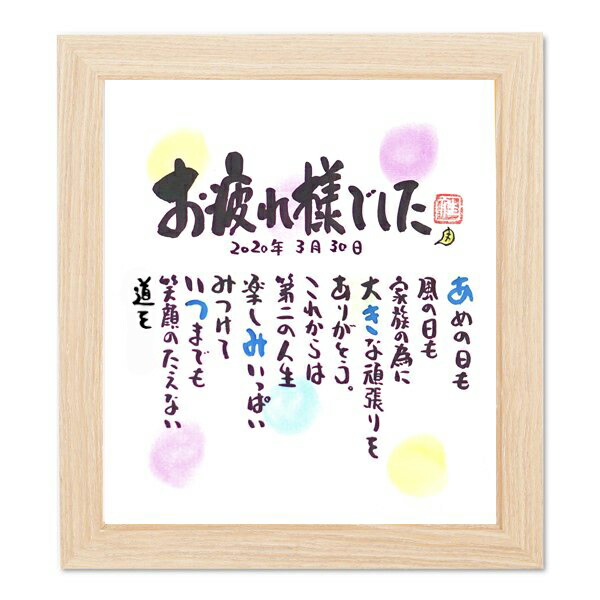 お疲れ様でした
2020年 3月 30日
あめの日も
風の日も
家族の為に
大きな頑張りを
ありがとう。
これからは
第二の人生
楽しみいっぱい
みつけて
いつまでも
笑顔のたえない
道を